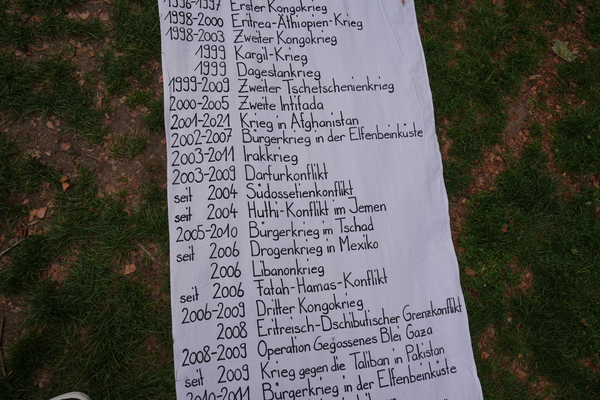 1996-1997 Erster Kongokrieg
1998-2000 Eritrea-Äthiopien-Krieg
1998-2003 Zweiter Kongokrieg
1999 Kargil-Krieg
1999 Dagestankrieg
1999-2009 Zweiter Tschetschenienkrieg
2000-2005 Zweite Intifada
2001-2021 Krieg in Afghanistan
2002-2007 Bürgerkrieg in der Elfenbeinküste
2003-2011 Irakkrieg
2003-2009 Darfurkonflikt
seit 2004 Südossetienkonflikt
seit 2004 Huthi-Konflikt im Jemen
2005-2010 Bürgerkrieg im Tschad
seit 2006 Drogenkrieg in Mexiko
2006 Libanonkrieg
seit 2006 Fatah-Hamas-Konflikt
2006-2009 Dritter Kongokrieg
2008 Eritreisch-Dschibutischer Grenzkonflikt
2008-2009 Operation Gegossenes Blei Gaza
seit 2009 Krieg gegen die Taliban in Pakistan
2010-2011 Bürgerkrieg in der Elfenbeinküste